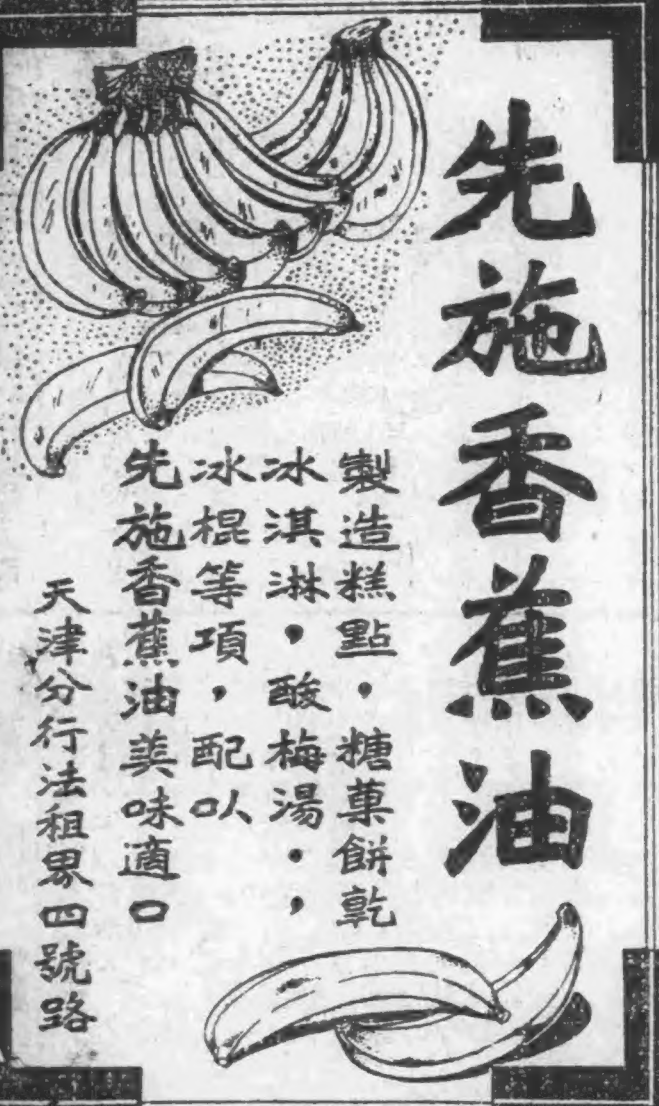 先施香蕉油
製造糕點，糖菓餅乾
冰淇淋，酸梅湯，，
冰棍等項，配㕥
先施香蕉油美味適口
天津分行法租界四號路